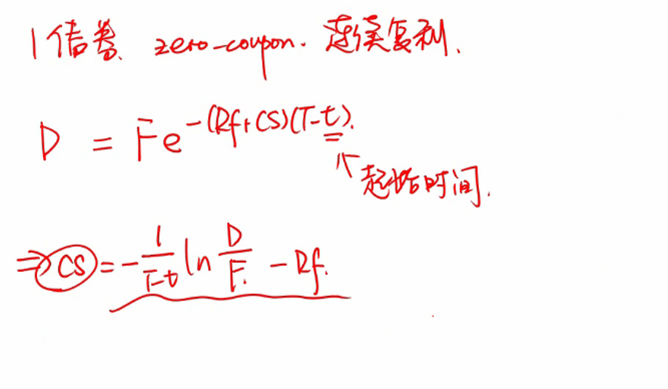 1 债券 zero-coupon. 连续复利.
D = Fe^{-(Rf+CS)(T-t)}.
起始时间.
⇒ CS = -\frac{1}{T-t} ln \frac{D}{F} - Rf.